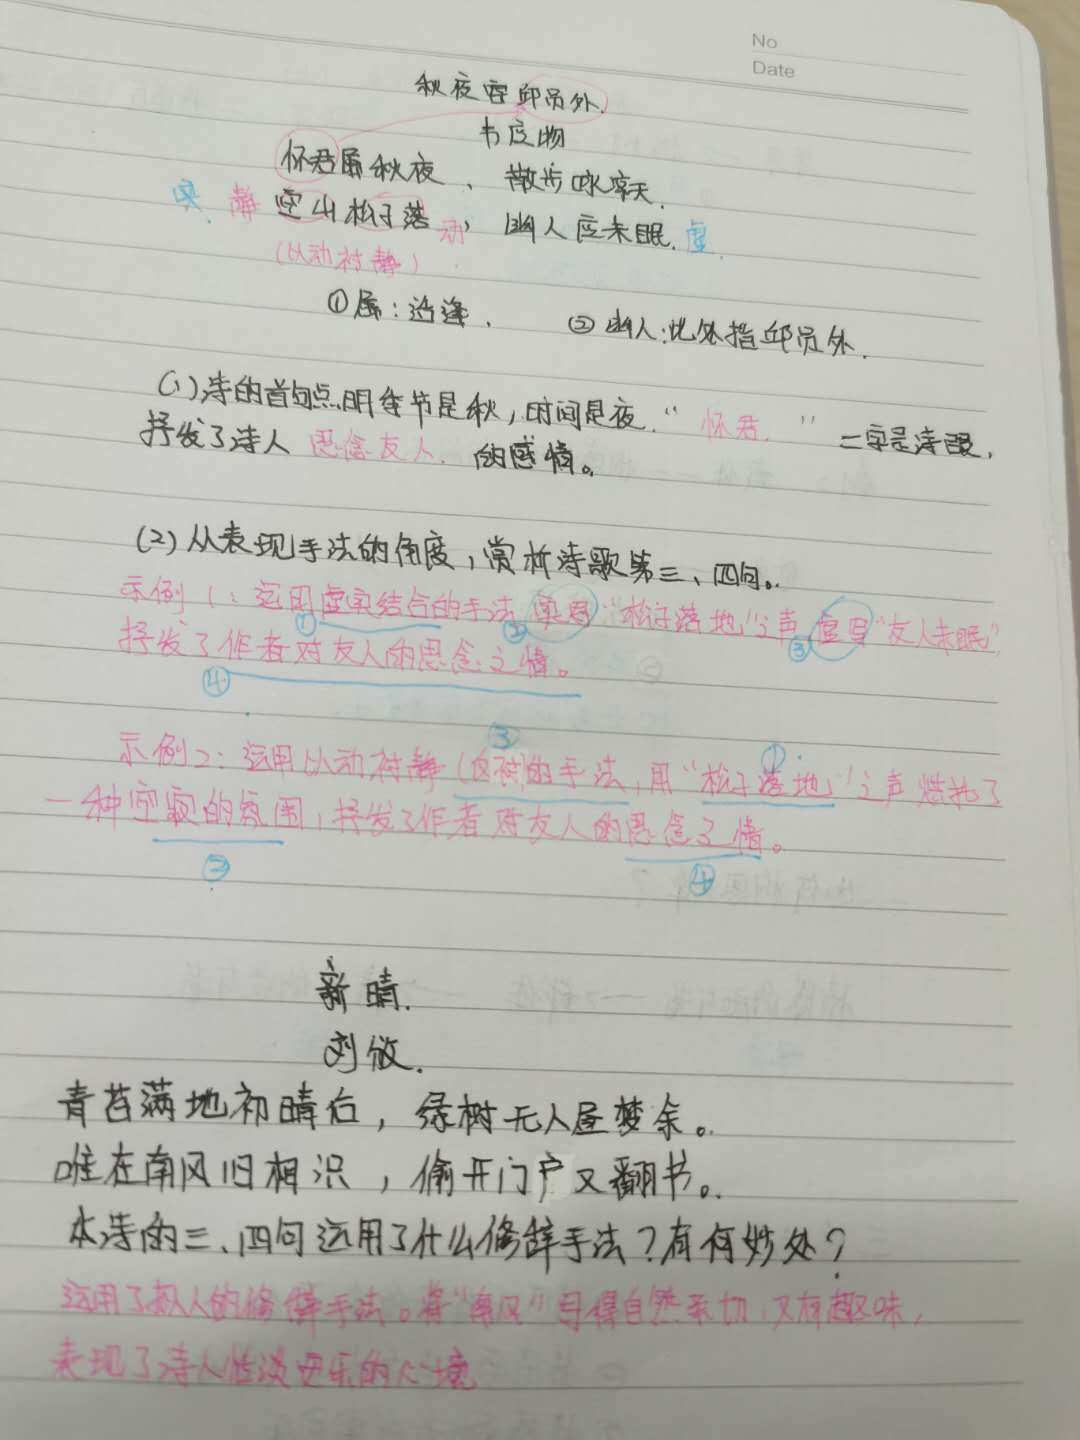 No
Date
秋夜寄邱员外.
韦应物
怀君属秋夜、散步咏凉天.
实 静 空山松子落 动, 幽人应未眠. 虚
(以动衬静)
①属:适逢. ②幽人:此处指邱员外.
(1)诗的首句点明季节是秋,时间是夜."怀君."二字是诗眼,
抒发了诗人 思念友人. 的感情。
(2)从表现手法的角度,赏析诗歌第三、四句。
示例1:运用虚实结合的手法,实写"松子落地"之声,虚写"友人未眠",
① ② ③
抒发了作者对友人的思念之情。
④
③ ①
示例2:运用以动衬静(反衬)的手法,用"松子落地"之声烘托了
一种空寂的氛围,抒发了作者对友人的思念之情。
② ④
新晴.
刘攽.
青苔满地初晴后,绿树无人昼梦余。
唯在南风旧相识,偷开门户又翻书。
本诗的三、四句运用了什么修辞手法?有何妙处?
运用了拟人的修辞手法。将"南风"写得自然亲切,又有趣味,
表现了诗人恬淡安乐的心境